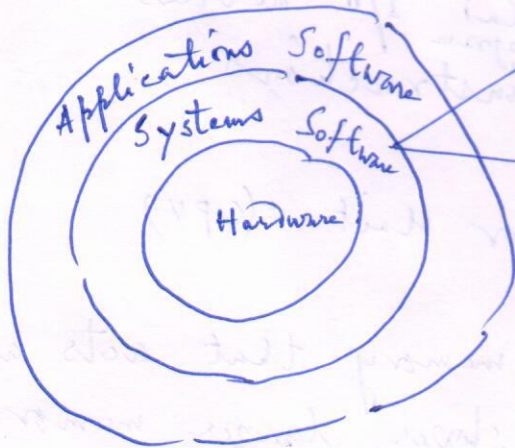 Applications Software
Systems Software
Hardware